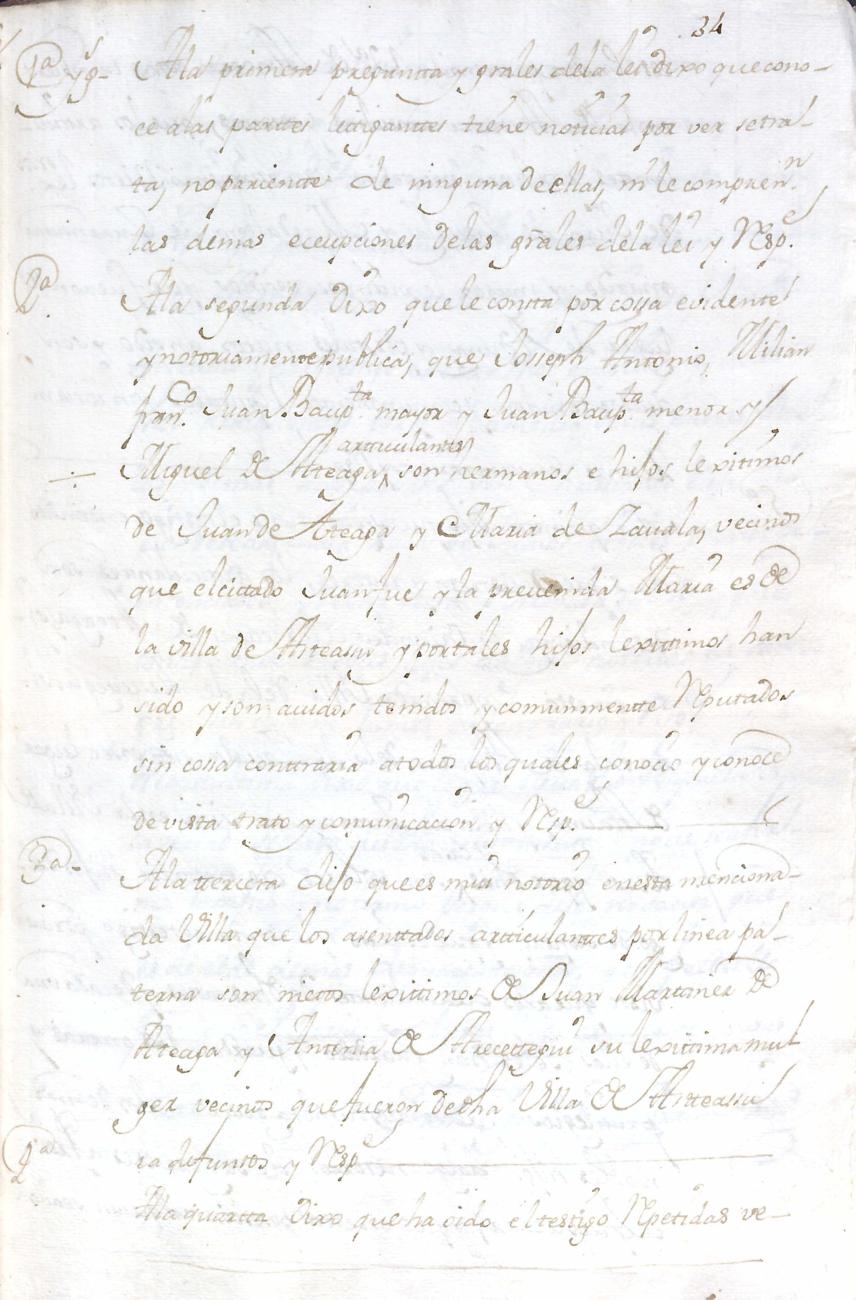 34
1ª y gs Ala primera pregunta y grãles dela lei dixo que cono-
ce alas parttes littiganttes tiene noticias por ver setra-
ta, no parientte de ninguna de ellas, ni le compren.n
las demas ecepciones delas grãles dela lei y Resp.e
2ª Ala segunda Dixo que le consta por cossa evidente
y nottoriamente publica, que Joseph Antonio, Milian
fran.co Juan Baup.ta mayor y Juan Baup.ta menor y
articulantes
Miguel de Atteaga, son hermanos e hijos lexitimos
de Juan de Ateaga y Maria de Zavala, vecinos
que el cittado Juan fue y la prevenida Maria es de
la villa de Artteassu y por tales hijos lexittimos han
sido y son avidos tenidos y comunmentte Reputados
sin cossa contraria atodos los quales conocio y conoce
de vista trato y comunicacion y Resp.e
3ª Ala tercera dijo que es mui notorio en esta menciona-
da Villa que los asenttados artticulanttes por linea pa-
terna son nietos lexittimos de Juan Martinez de
Atteaga y Antonia de Arrecettegui su lexittima mu-
ger vecinos que fueron de dha Villa de Artteassu
ia difuntos y Resp.e
4ª Ala quartta Dixo que ha oido el testigo Repetidas ve-